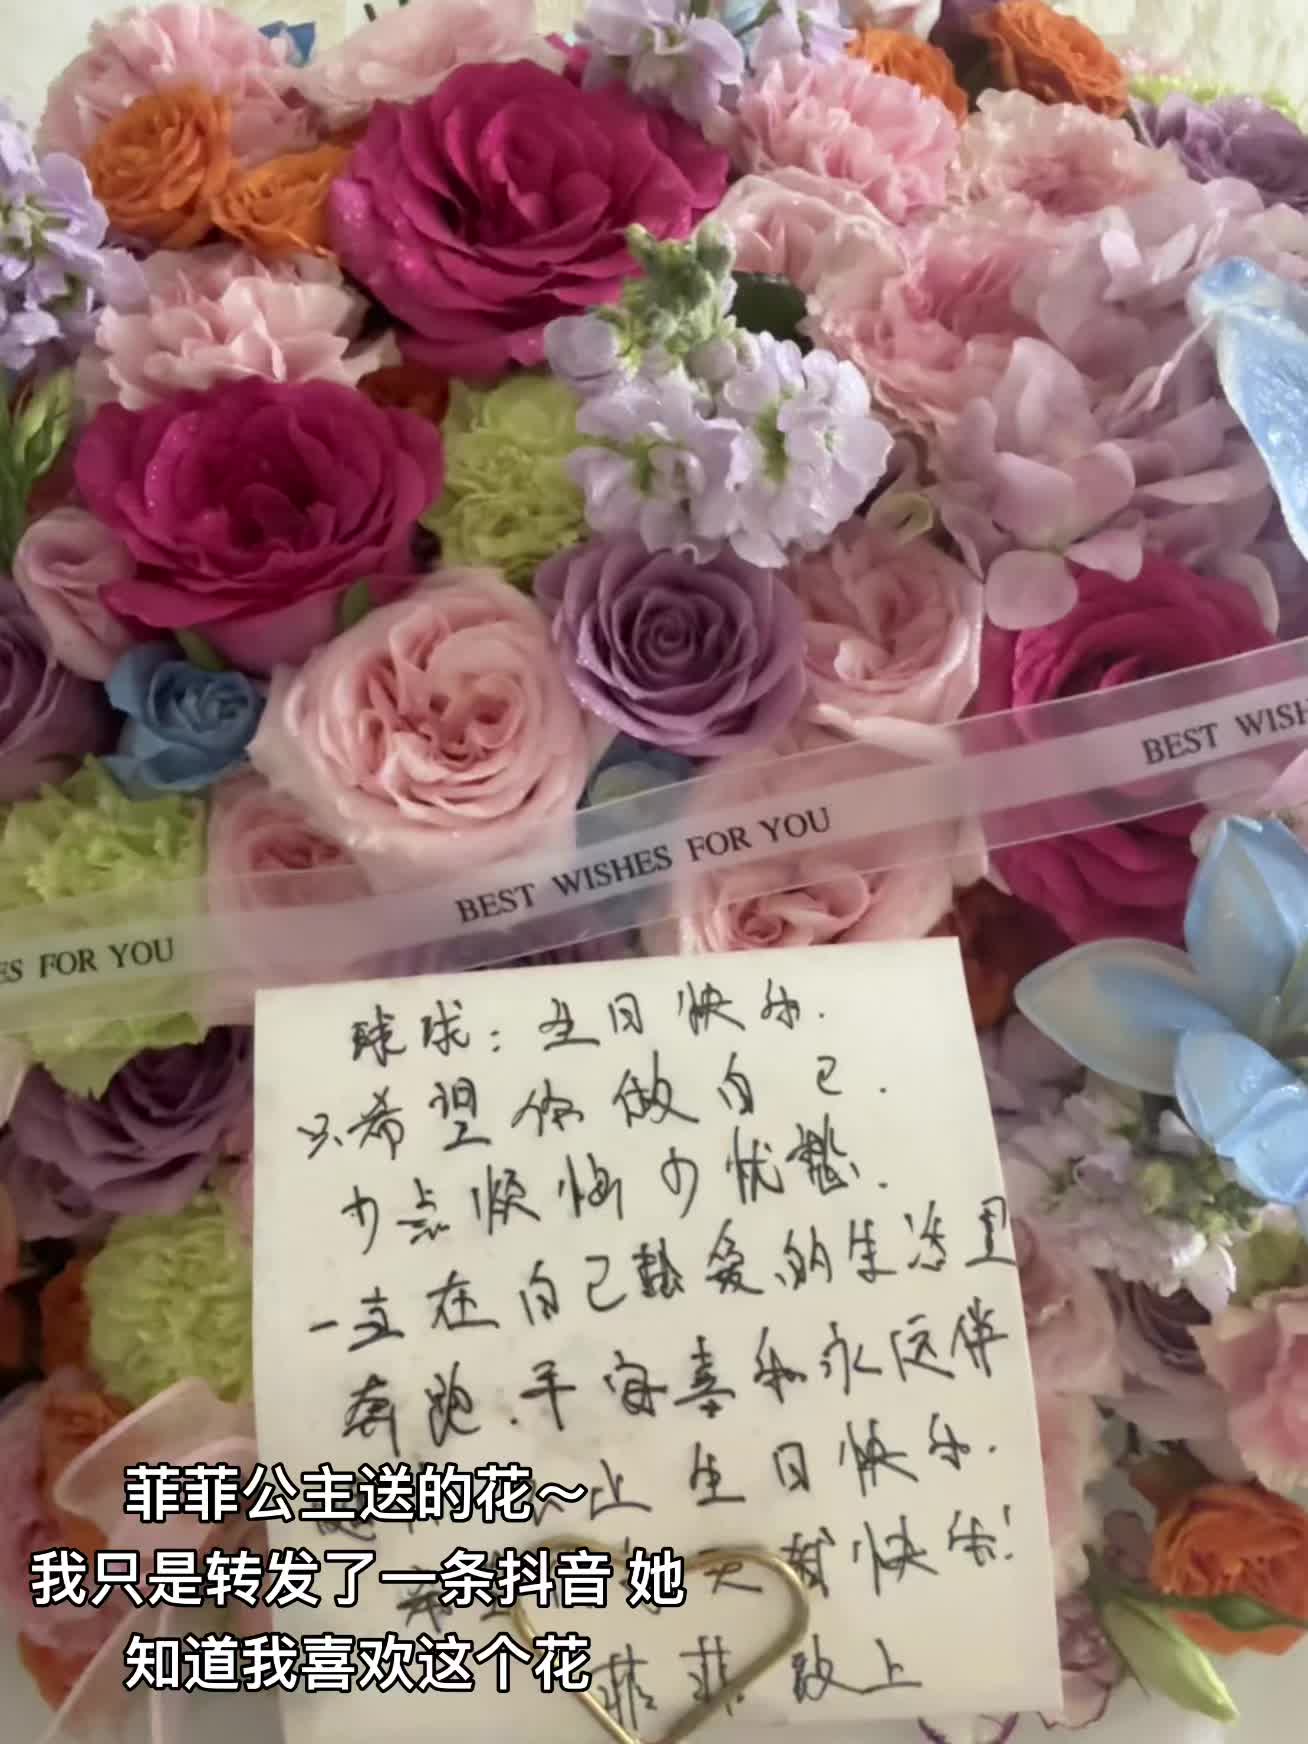 BEST WISH
BEST WISHES FOR YOU
ES FOR YOU
球球：生日快乐.
只希望你做自己.
少点烦恼少忧愁.
一直在自己热爱的生活里
奔跑.平安喜乐永远伴
上生日快乐.
天都快乐!
菲菲敬上
菲菲公主送的花～
我只是转发了一条抖音 她
知道我喜欢这个花